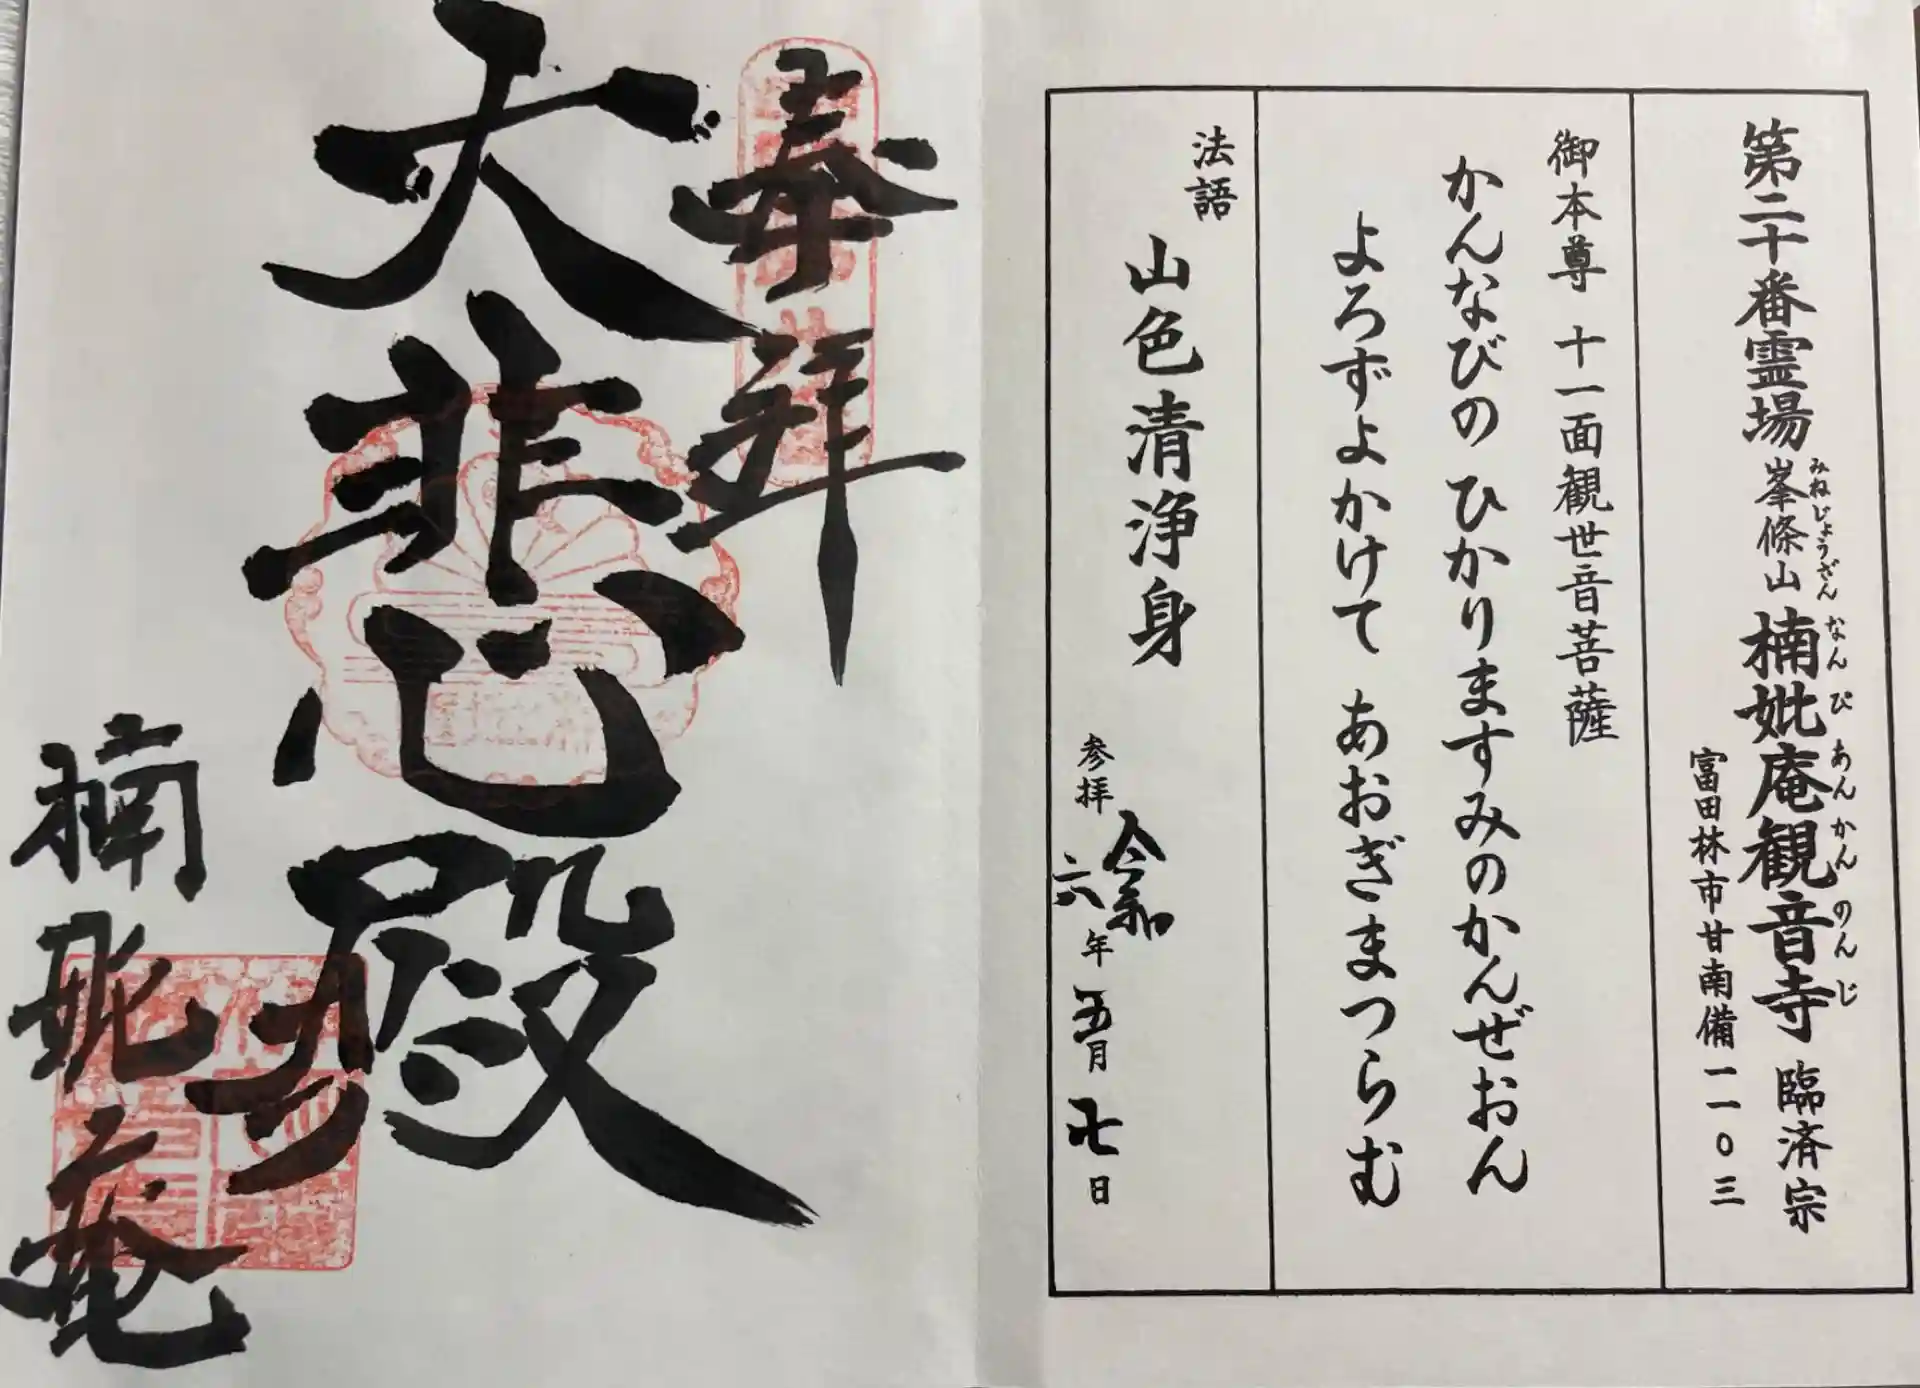 第二十番霊場 峯條山 楠妣庵観音寺 臨済宗
みねじょうざん なんぴあんかんのんじ
富田林市甘南備一一〇三
御本尊 十一面観世音菩薩
かんなびの ひかりますみのかんぜおん
よろずよかけて あおぎまつらむ
法語
山色清浄身
参拝 令和六年五月七日
奉拝
大悲殿
楠妣庵